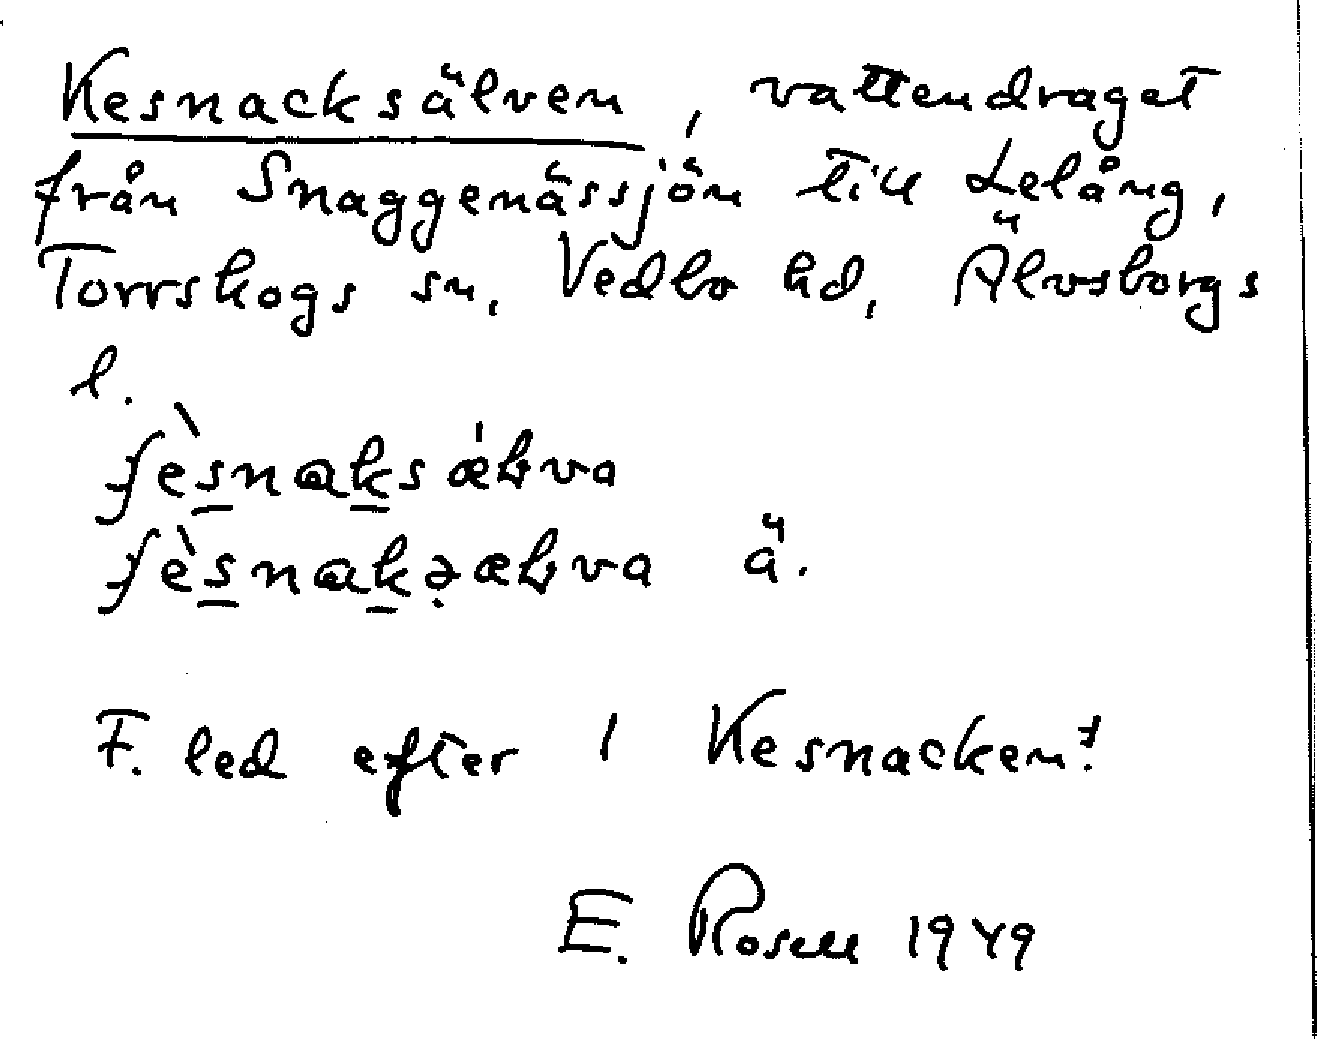 Kesnacksälven, vattendraget
från Snaggenässjön till Lelång,
Torrskogs sn, Vedbo hd, Älvsborgs
l.
ä.
F. led efter 1 Kesnacken?
E. Rosell 1949